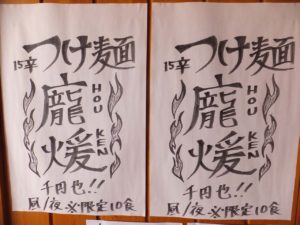 15辛 つけ麺
龐煖
HOU
KEN
千円也!!
昼/夜 各限定10食
15辛 つけ麺
龐煖
HOU
KEN
千円也!!
昼/夜 各限定10食